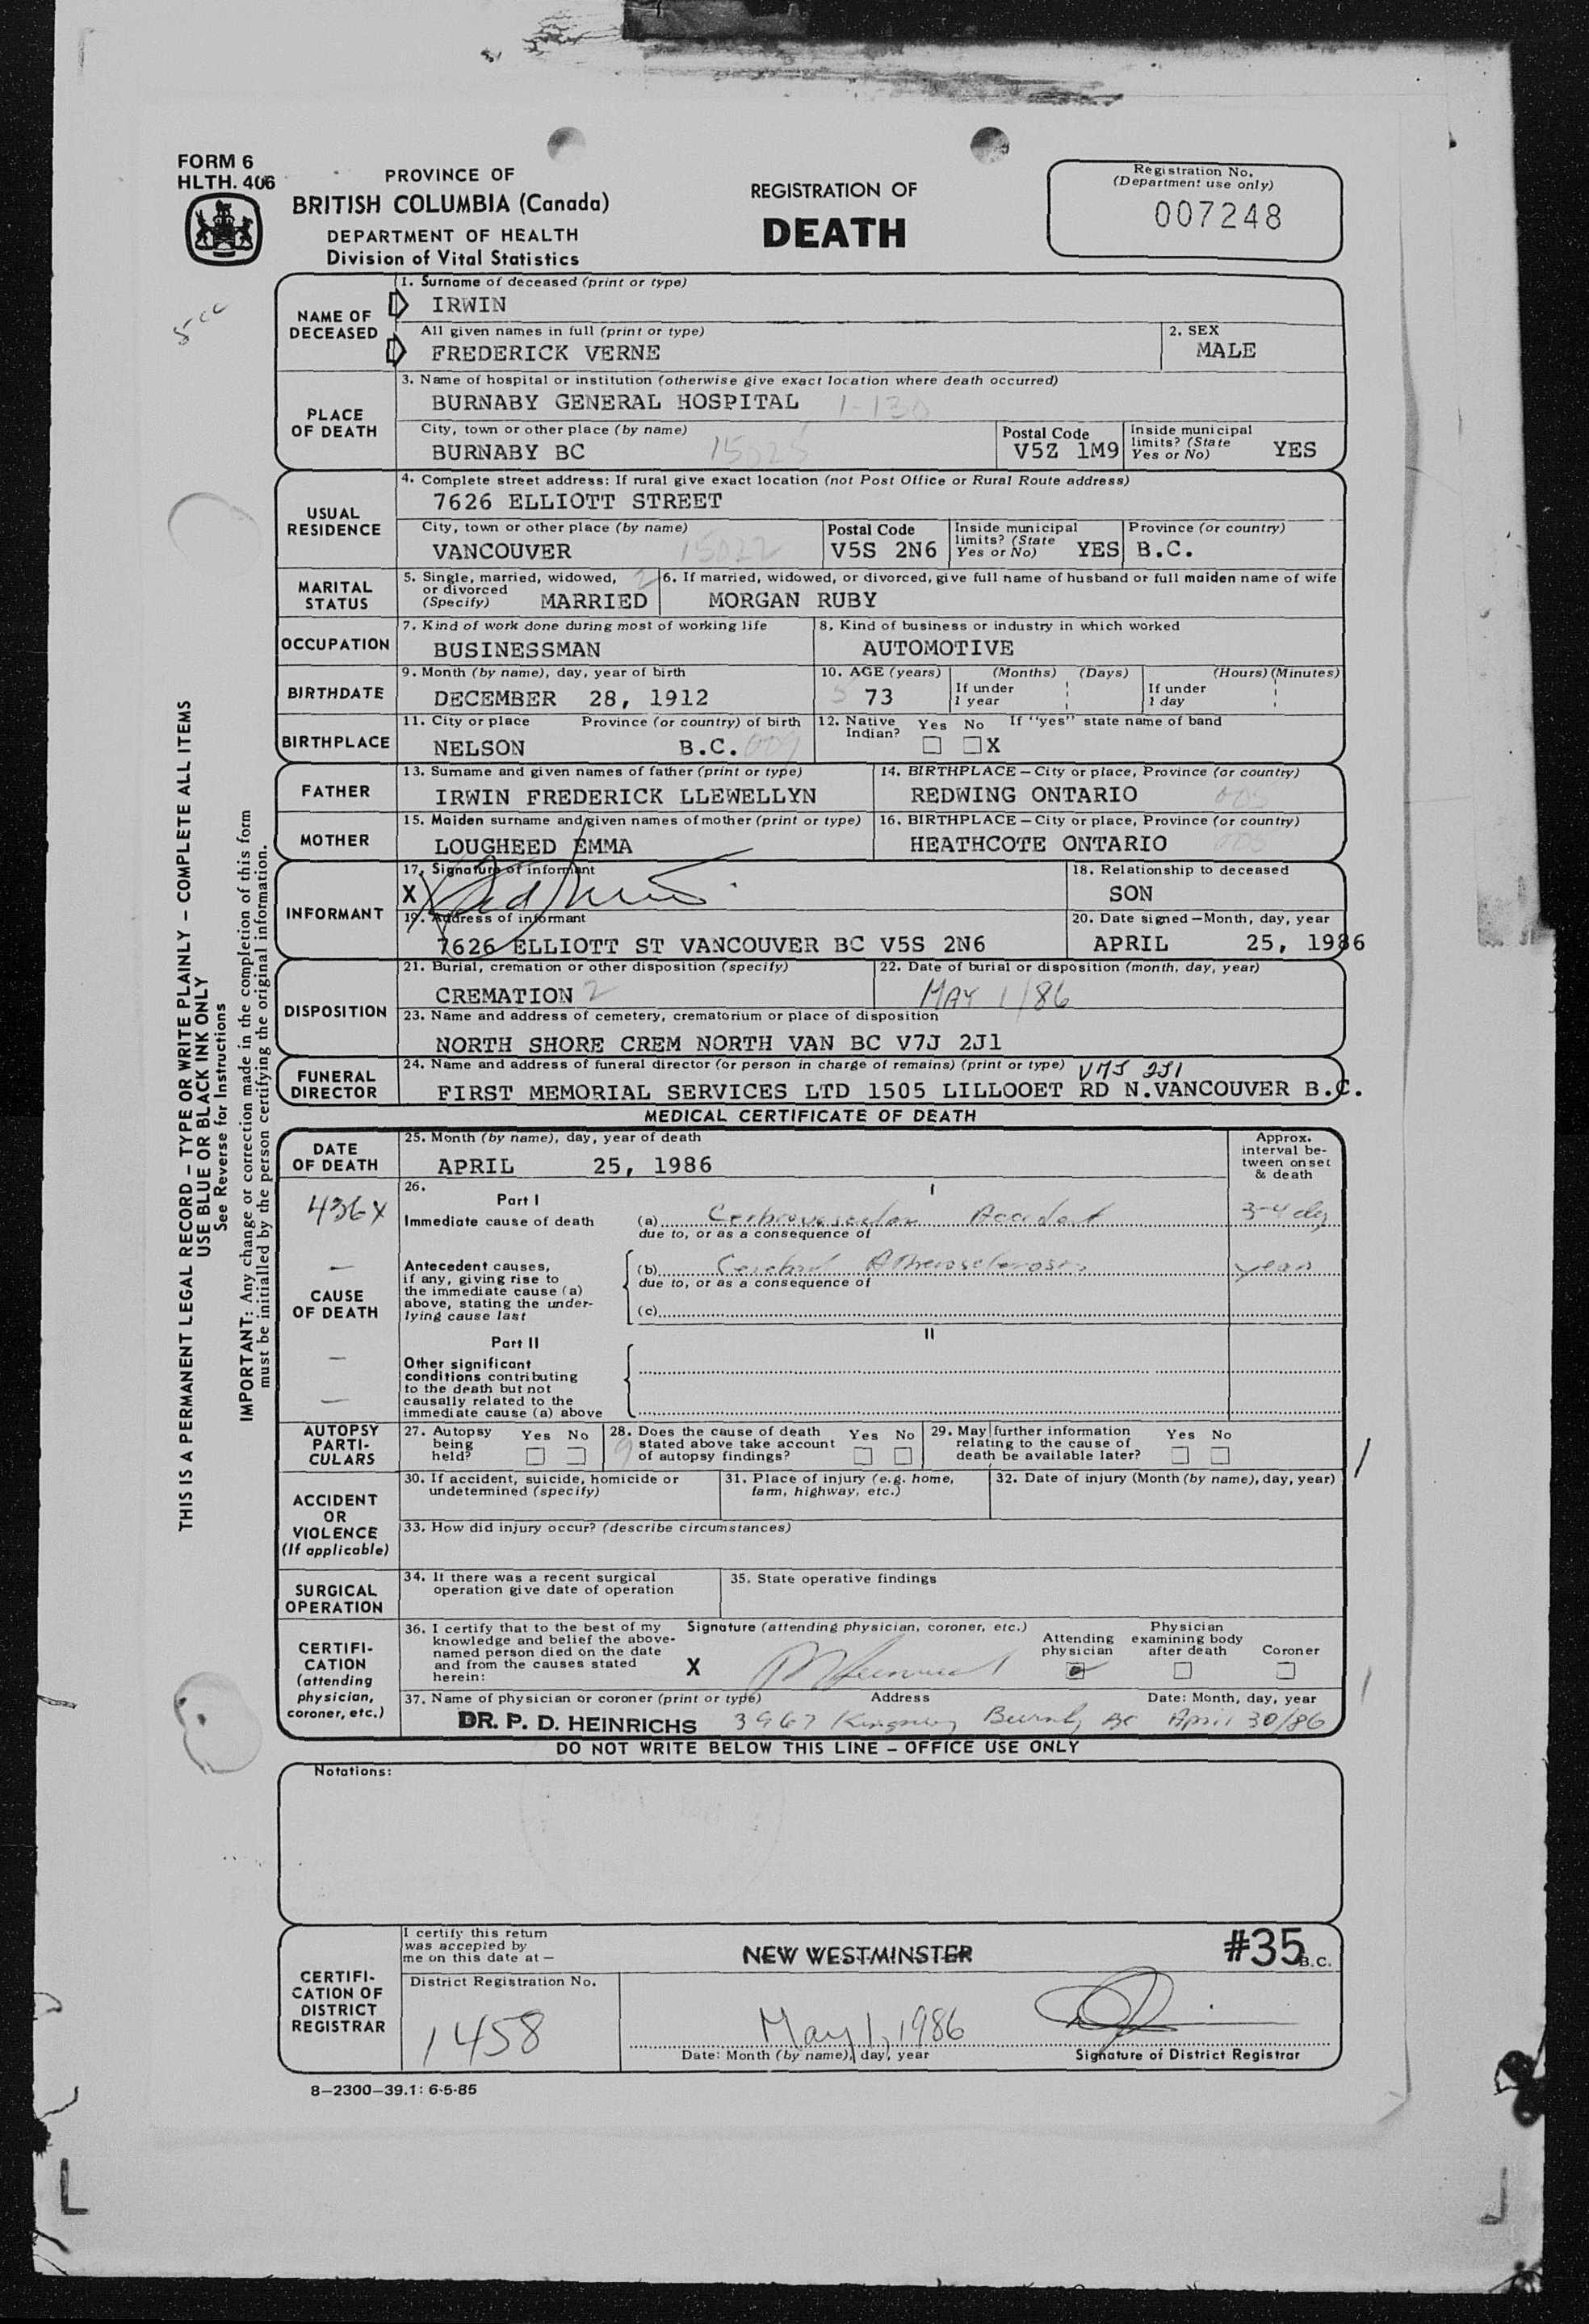 FORM 6
HLTH. 406
PROVINCE OF
BRITISH COLUMBIA (Canada)
DEPARTMENT OF HEALTH
Division of Vital Statistics
REGISTRATION OF
DEATH
Registration No.
(Department use only)
007248
THIS IS A PERMANENT LEGAL RECORD – TYPE OR WRITE PLAINLY – COMPLETE ALL ITEMS
USE BLUE OR BLACK INK ONLY
See Reverse for Instructions
IMPORTANT: Any change or correction made in the completion of this form
must be initialled by the person certifying the original information.
NAME OF
DECEASED
1. Surname of deceased (print or type)
IRWIN
All given names in full (print or type)
FREDERICK VERNE
2. SEX
MALE
PLACE
OF DEATH
3. Name of hospital or institution (otherwise give exact location where death occurred)
BURNABY GENERAL HOSPITAL 1-130
City, town or other place (by name)
BURNABY BC 15025
Postal Code
V5Z 1M9
Inside municipal
limits? (State
Yes or No) YES
USUAL
RESIDENCE
4. Complete street address: If rural give exact location (not Post Office or Rural Route address)
7626 ELLIOTT STREET
City, town or other place (by name)
VANCOUVER 15022
Postal Code
V5S 2N6
Inside municipal
limits? (State
Yes or No) YES
Province (or country)
B.C.
MARITAL
STATUS
5. Single, married, widowed, 2
or divorced
(Specify) MARRIED
6. If married, widowed, or divorced, give full name of husband or full maiden name of wife
MORGAN RUBY
OCCUPATION
7. Kind of work done during most of working life
BUSINESSMAN
8. Kind of business or industry in which worked
AUTOMOTIVE
BIRTHDATE
9. Month (by name), day, year of birth
DECEMBER 28, 1912
10. AGE (years)
5 73
(Months) (Days)
If under
1 year
(Hours) (Minutes)
If under
1 day
BIRTHPLACE
11. City or place Province (or country) of birth
NELSON B.C. 009
12. Native
Indian?
Yes No
X
If "yes" state name of band
FATHER
13. Surname and given names of father (print or type)
IRWIN FREDERICK LLEWELLYN
14. BIRTHPLACE – City or place, Province (or country)
REDWING ONTARIO 005
MOTHER
15. Maiden surname and given names of mother (print or type)
LOUGHEED EMMA
16. BIRTHPLACE – City or place, Province (or country)
HEATHCOTE ONTARIO 005
INFORMANT
17. Signature of informant
X
18. Relationship to deceased
SON
19. Address of informant
7626 ELLIOTT ST VANCOUVER BC V5S 2N6
20. Date signed – Month, day, year
APRIL 25, 1986
DISPOSITION
21. Burial, cremation or other disposition (specify)
CREMATION 2
22. Date of burial or disposition (month, day, year)
MAY 1/86
23. Name and address of cemetery, crematorium or place of disposition
NORTH SHORE CREM NORTH VAN BC V7J 2J1
FUNERAL
DIRECTOR
24. Name and address of funeral director (or person in charge of remains) (print or type) V7J 2J1
FIRST MEMORIAL SERVICES LTD 1505 LILLOOET RD N.VANCOUVER B.C.
MEDICAL CERTIFICATE OF DEATH
DATE
OF DEATH
25. Month (by name), day, year of death
APRIL 25, 1986
Approx.
interval be-
tween onset
& death
436X
CAUSE
OF DEATH
26.
Part I
I
Immediate cause of death
(a) Cerebrovascular Accident 3-4 dys
due to, or as a consequence of
Antecedent causes,
if any, giving rise to
the immediate cause (a)
above, stating the under-
lying cause last
(b) Cerebral Atherosclerosis years
due to, or as a consequence of
(c)
Part II
II
Other significant
conditions contributing
to the death but not
causally related to the
immediate cause (a) above
AUTOPSY
PARTI-
CULARS
27. Autopsy
being
held?
Yes No
28. Does the cause of death
stated above take account
of autopsy findings?
9
Yes No
29. May further information
relating to the cause of
death be available later?
Yes No
ACCIDENT
OR
VIOLENCE
(If applicable)
30. If accident, suicide, homicide or
undetermined (specify)
31. Place of injury (e.g. home,
farm, highway, etc.)
32. Date of injury (Month (by name), day, year)
33. How did injury occur? (describe circumstances)
SURGICAL
OPERATION
34. If there was a recent surgical
operation give date of operation
35. State operative findings
CERTIFI-
CATION
(attending
physician,
coroner, etc.)
36. I certify that to the best of my
knowledge and belief the above-
named person died on the date
and from the causes stated
herein:
Signature (attending physician, coroner, etc.)
X
Attending
physician
Physician
examining body
after death
Coroner
37. Name of physician or coroner (print or type)
Address
Date: Month, day, year
DR. P. D. HEINRICHS 3967 Kingsway Burnaby BC April 30/86
DO NOT WRITE BELOW THIS LINE – OFFICE USE ONLY
Notations:
CERTIFI-
CATION OF
DISTRICT
REGISTRAR
I certify this return
was accepted by
me on this date at –
NEW WESTMINSTER
#35 B.C.
District Registration No.
1458
May 1, 1986
Date: Month (by name), day, year
Signature of District Registrar
8–2300–39.1: 6-5-85